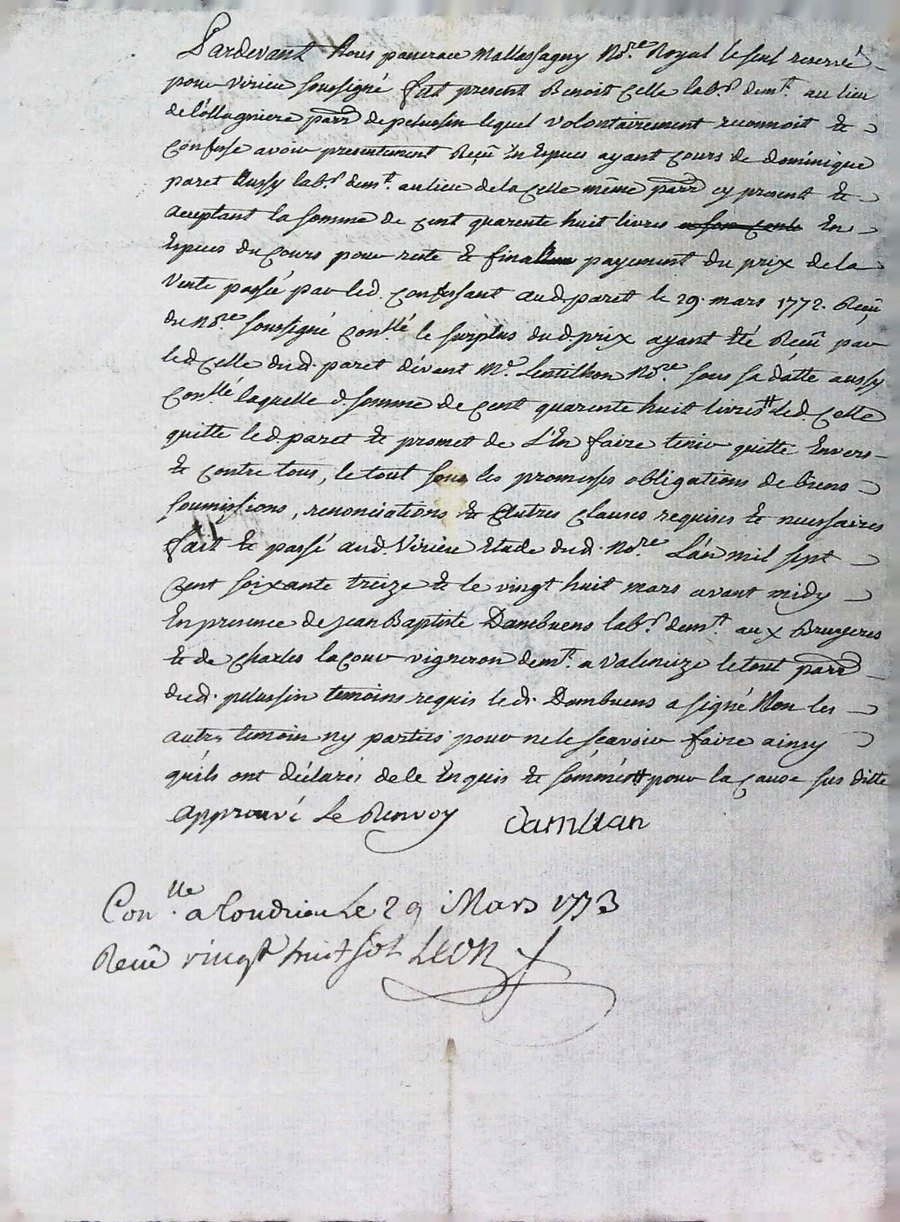 Pardevant Nous pancrace mallassagny No.re Royal le seul reservé
pour Virieu soussigné fut present Benoit Celle lab.r dem.t au lieu
de lollagniere parr. de pelussin lequel volontairement reconnoit &
Confesse avoir presentement Reçû En Especes ayant Cours de dominique
paret Aussy lab.r dem.t au lieu de la Celle même parr. cy present &
acceptant la somme de Cent quarente huit livres En
Especes du Cours pour reste & final payement du prix de la
Vente passée par led. Confessant aud. paret le 29. mars 1772. Reçû
du No.re soussigné Con.llé le surplus dud. prix ayant été Reçû par
led. Celle dud. paret dévant M.e Lentillon No.re sous sa datte aussy
Con.llé laquelle d. somme de Cent quarente huit livres led. Celle
quitte led. paret & promet de L'En faire tenir quitte Envers
& Contre tous, le tout sous les promesses obligations de biens
soumissions, renonciations & Autres Clauses requises & necessaires
fait & passé aud. Virieu Etude dud. No.re L'an mil sept
Cent soixante treize & le vingt huit mars avant midy
En presence de jean Baptiste Dambuens lab.r dem.t aux Bruyeres
& de Charles lacour vigneron dem.t a Valeneize le tout parr.
dud. pelussin temoins requis led. Dambuens a signé Non les
autre temoin ny parties pour ne le sçavoir faire ainsy
quils ont déclarés de le Enquis & sommés pour la Cause sus ditte
Approuvé Le Renvoy

Con.lle a Condrieu Le 29 Mars 1773
Reçu vingt huit sol LEON